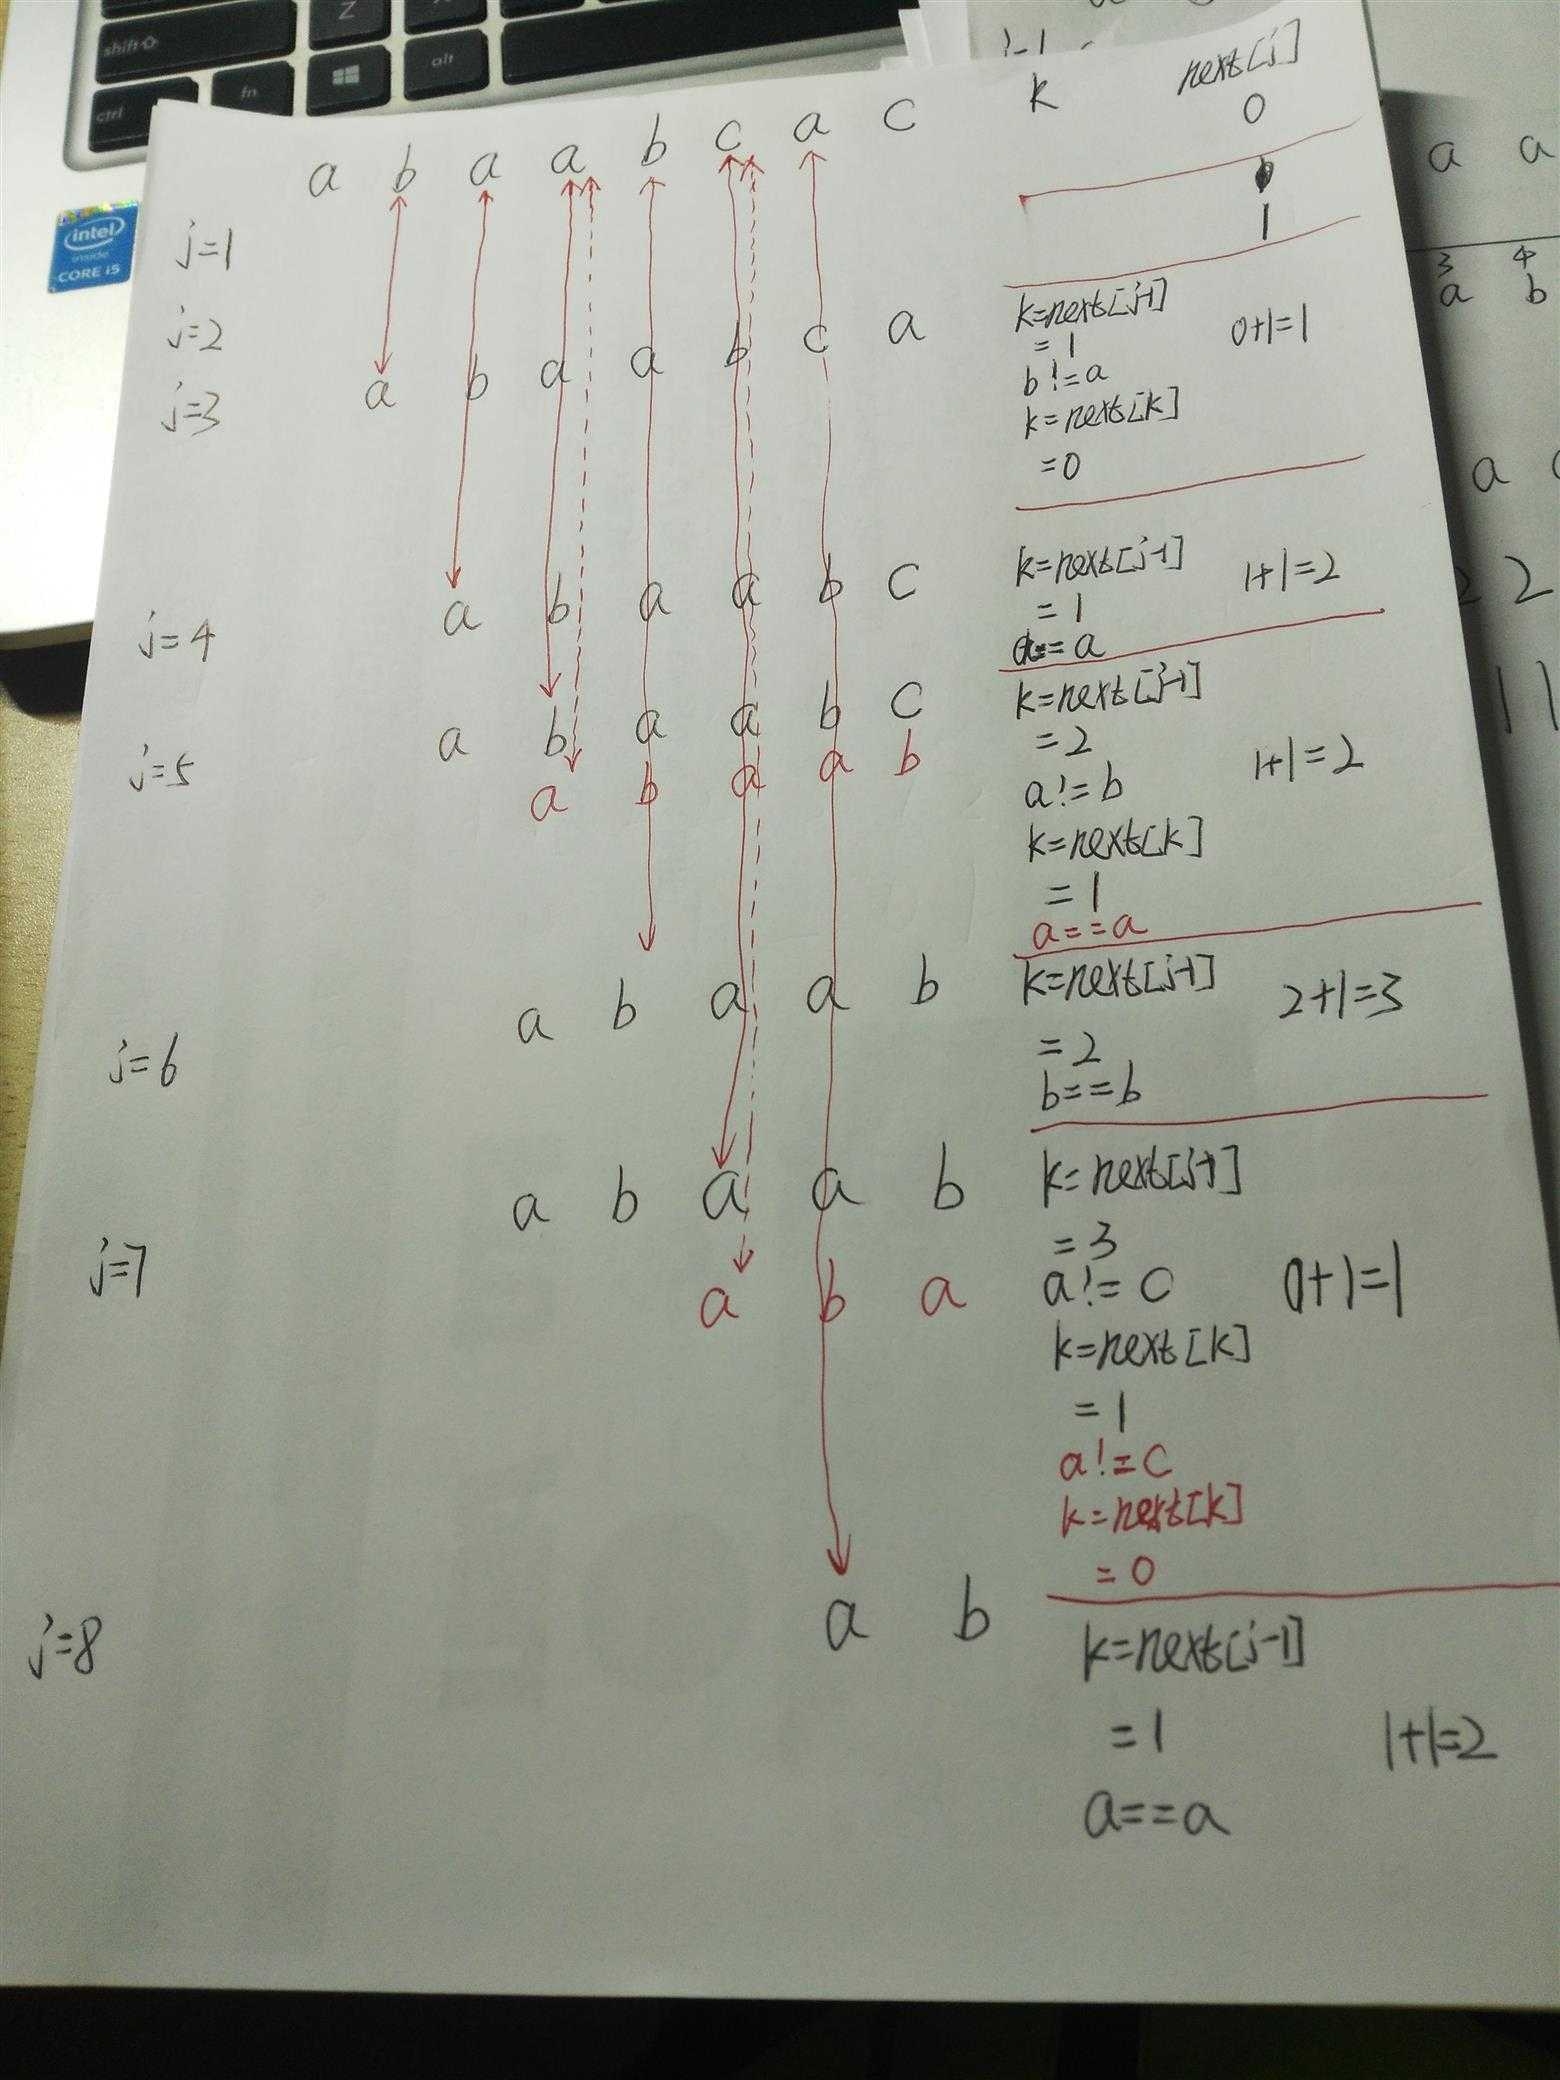 Z
shift
ctrl
fn
alt
intel
inside
CORE i5
a b a a b c a c k next[j]
0
j=1
1
j=2
k=next[j-1]
=1
0+1=1
b!=a
k=next[k]
=0
j=3
a b a a b c a
j=4
a b a a b c
k=next[j-1]
=1
1+1=2
a==a
j=5
a b a a b c
a b a a b
k=next[j-1]
=2
1+1=2
a!=b
k=next[k]
=1
a==a
j=6
a b a a b
k=next[j-1]
=2
2+1=3
b==b
j=7
a b a a b
a b a
k=next[j-1]
=3
a!=c
0+1=1
k=next[k]
=1
a!=c
k=next[k]
=0
j=8
a b
k=next[j-1]
=1
1+1=2
a==a
a a
3 4
a b
a
2 2
1 1